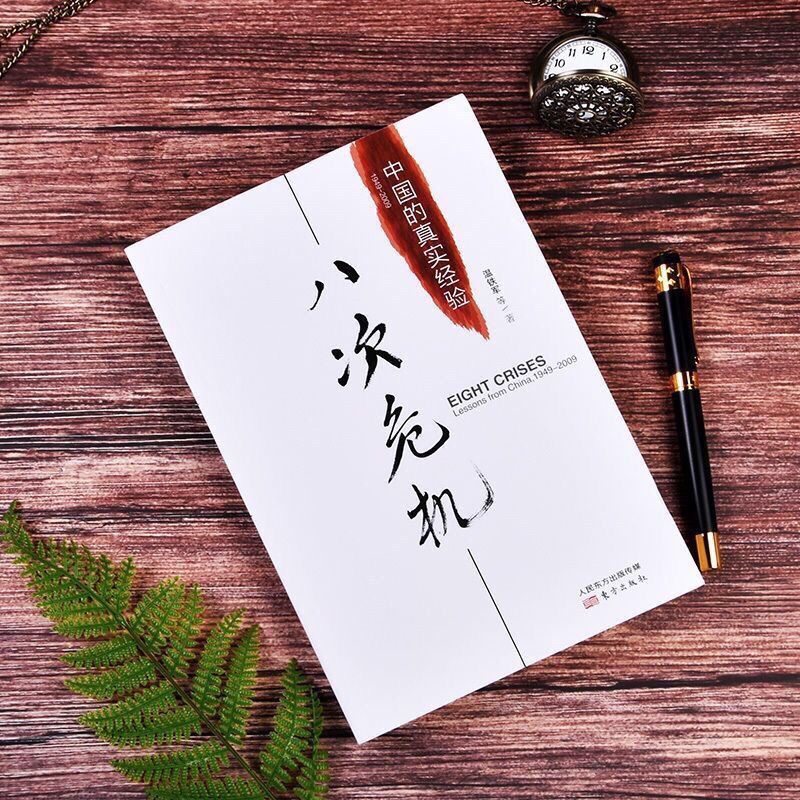 中国的真实经验
1949-2009
八次危机
温铁军 等/著
EIGHT CRISES
Lessons from China, 1949-2009
人民东方出版传媒
东方出版社
12
11
10
9
8
7
6
5
4
3
2
1